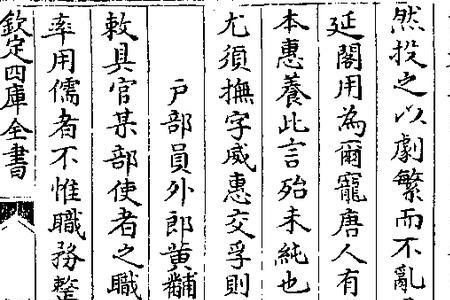 然投之以劇繁而不亂
延閣用為爾寵唐人有
本惠養此言殆未純也
尤須撫字威惠交孚則
户部員外郎黄黼
敕具官某部使者之職
率用儒者不惟職務整
欽定四庫全書